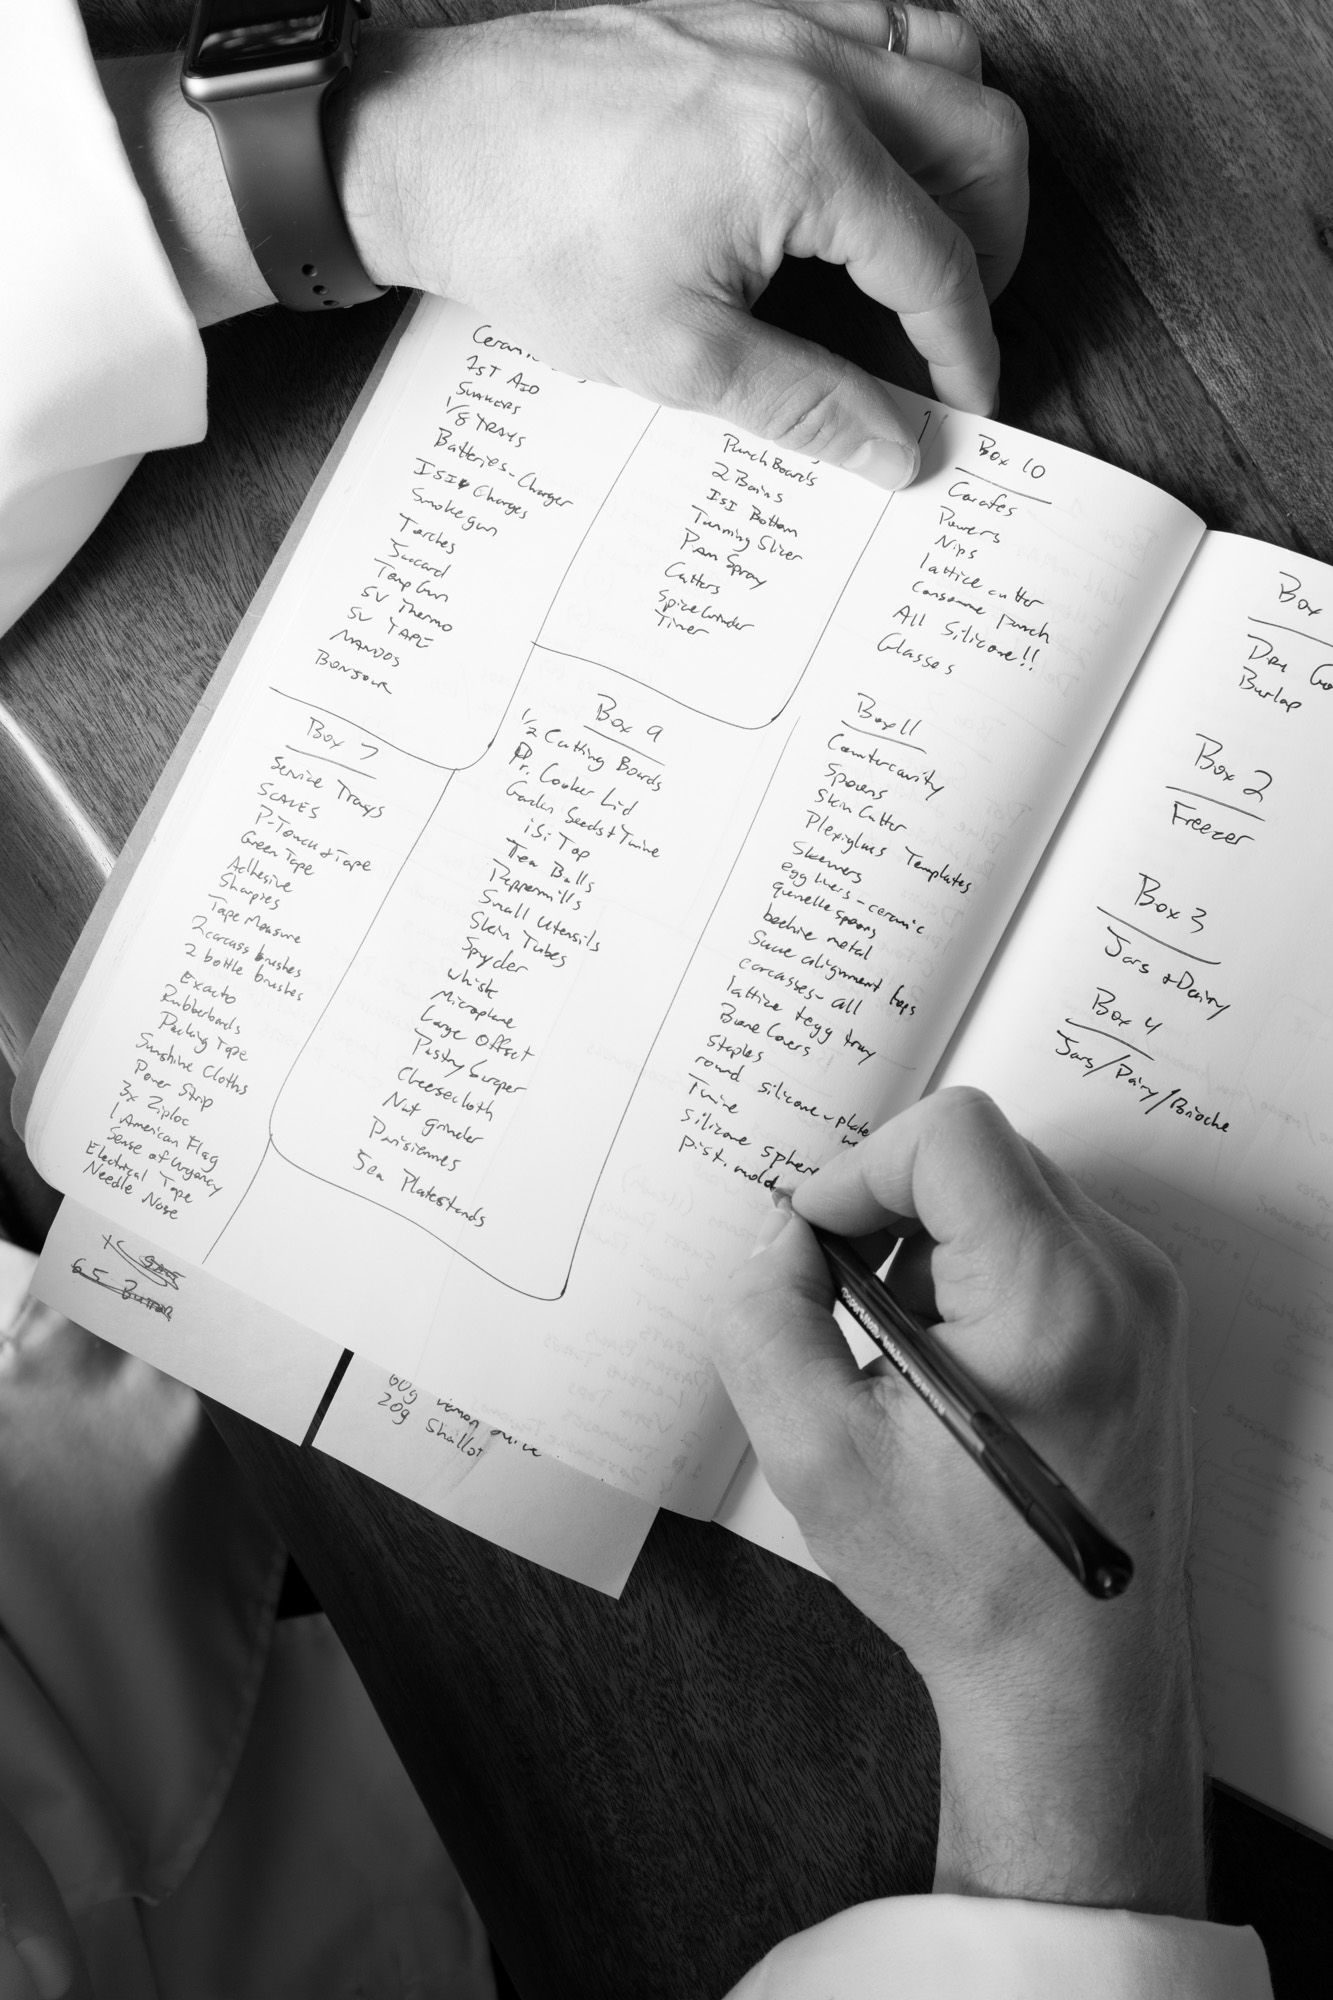 1ST AID
SHAKERS
1/8 TRAYS
Batteries - Charger
ISI Charges
Smoke gun
Torches
Temp Gun
SV Thermo
SV TAPE
MANDOS
BONJOUR
Box 7
Service Trays
SCALES
P-Touch + Tape
Green Tape
Adhesive
Sharpies
Tape Measure
2 carcass brushes
2 bottle brushes
Exacto
Rubberbands
Packing Tape
Sunshine Cloths
Power Strip
3x Ziploc
1 American Flag
Sense of Urgency
Electrical Tape
Needle Nose
Punch Boards
2 Bains
ISI Bottom
Turning Slicer
Pam Spray
Cutters
Spice Grinder
Timer
Box 9
1/2 Cutting Boards
Pr. Cooker Lid
Garden Seeds + Twine
iSi Top
Tea Balls
Peppermills
Small Utensils
Skin Tubes
Spyder
whisk
Microplane
Large Offset
Pastry Scraper
Cheesecloth
Nut grinder
Parisiennes
Sea Platestands
Box 10
Carafes
Powers
Nips
lattice cutter
consomme punch
All Silicone!!
Glasses
Box 11
Countercavity
Spoons
Skin Cutter
Plexiglass Templates
Skewers
egg liners - ceramic
quenelle spoons
beehive metal
Sauce alignment tops
carcasses - all
lattice + egg tray
Bone Covers
Staples
round silicone - plate
Twine
silicone sphere
pist. mold
Box
Dry
Burlap
Box 2
Freezer
Box 3
Jars + Dairy
Box 4
Jars/Dairy/Brioche
60g lemon juice
20g Shallot